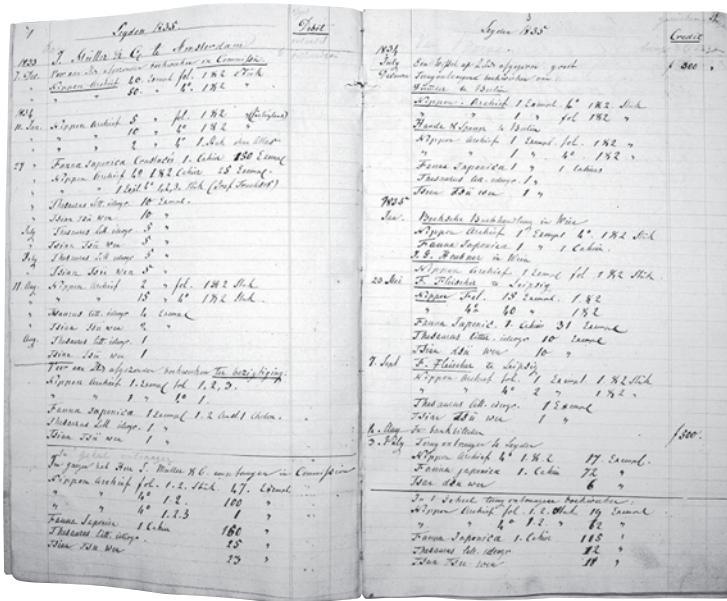 1
Leyden 1835.
Debit
J. Müller & Co te Amsterdam
1833
7. Dec. Voor en door afgezonden boekwerken in Commissie.
Nippon Archief 20 Exempl. fol. 1 & 2 Stuk
" " 50 " 4° 1 & 2 "
1834
11. Jan. Nippon Archief 5 " fol 1 & 2
" " 10 " 4° 1 & 2 "
" " 2 " 4° 1 Stuk den Atlas
27 " Fauna Japonica Crustacea 1. Cahier 150 Exempl
" Nippon Archief 4° 1 & 2 Cahier 25 Exempl.
" " 1 Expl 4° 1, 2, 3. Stuk
" Thesaurus litt. ideogr. 10 Exempl.
" Tsian Dsü wen 10 "
July Thesaurus litt. ideogr 5 "
" Tsian Dsü wen 5 "
July Thesaurus litt ideogr 5 "
" Tsian Dsü wen 5 "
11. Aug. Nippon Archief 2 " fol. 1 & 2 Stuk
" " 15 " 4° 1 & 2 Stuk.
" Thesaurus litt. ideogr 4 Exempl
" Tsian Dsü wen 2 "
Aug. Thesaurus litt. ideogr. 1
" Tsian Dsü wen 1
Voor en door afgezonden boekwerken ter bezigtiging.
Nippon Archief 1. Exempl fol 1. 2, 3.
" " 1 " 4° 1.
Fauna Japonica 1 Exempl. 1. 2
Thesaurus litt. ideogr. 1 "
Tsian Dsü wen 1 "
In geheel ontvangen
J. Müller & C. in Commissie
Nippon Archief fol. 1. 2. Stuk 47. Exempl
" " 4° 1. 2. 100 "
" " 4° 1. 2. 3 1 "
Fauna Japonica 1 Cahier 160 "
Thesaurus litt. ideogr. 25 "
Tsian Dsü wen 23 "
3
Leyden 1835
Credit
1834
July Een Wissel op afgegeven groot f 300 "
Terug ontvangen boekwerken van
Dümler te Berlin
Nippon Archief 1 Exempl. 4° 1 & 2. Stuk
" " 1 " fol 1 & 2 "
Haude & Spener te Berlin
Nippon Archief 1 Exempl. fol. 1 & 2 "
" " 1 " 4° 1 & 2 "
Fauna Japonica 1 " 1. Cahier
Thesaurus litt. ideogr. 1 "
Tsian Dsü wen 1 "
1835
Jan. Becksche Buchhandlung in Wien
Nippon Archief 1 Exempl 4° 1 & 2 Stuk
Fauna Japonica 1 " 1. Cahier.
J. G. Heubner in Wien
Nippon Archief 1 Exempl fol 1 & 2 Stuk.
23 Mei F. Fleischer te Leipzig
Nippon Fol. 15 Exempl. 1 & 2
" 4° 40 " 1 & 2
Fauna Japonic. 1. Cahier 31 Exempl
Thesaurus litter. ideogr 10 Exempl
Tsian dsü wen 10 "
7. Sept F. Fleischer te Leipzig
Nippon Archief fol. 1 Exempl. 1. & 2 Stuk
" " 4° 2 " 1 & 2 "
Thesaurus litt. ideogr. 1 Exempl
Tsian Dsü wen 1 "
Aug In bankbilletten f 500.
3. July Terug ontvangen te Leyden
Nippon Archief 4° 1. & 2. 17 Exempl.
Fauna japonica 1. Cahier 72 "
Tsian dsü wen 6 "
In 't Geheel terug ontvangen boekwerken.
Nippon Archief fol. 1. 2. Stuk 19 Exempl
" " 4° 1. 2. " 62 "
Fauna Japonica 1. Cahier 115 "
Thesaurus litt. ideogr 12 "
Tsian Dsü wen 18 "